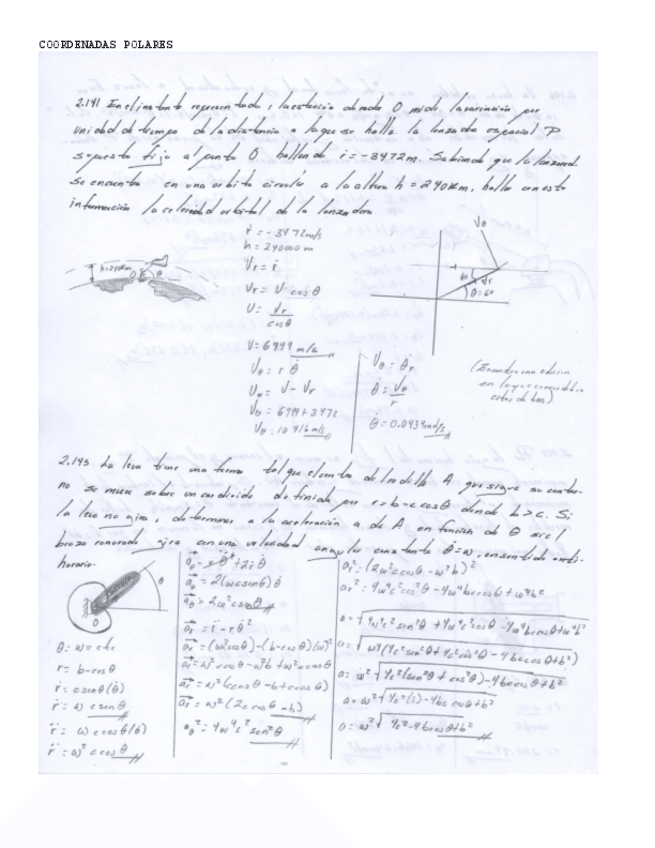 COORDENADAS POLARES
2.141 En el instante representado, la estación de radio O mide la variación por
unidad de tiempo de la distancia a la que se halla la lanzada espacial P
supuesto fijo al punto O hallando ṙ = -3472m. Sabiendo que la lanzad.
se encuentra en una orbita circular a la altura h = 240Km, hallar con esta
información la celeridad orbital de la lanzadera
ṙ = -3472 m/s
h = 240000 m
Vr = ṙ
Vr = V cos θ
U = Vr / cos θ
V = 6944 m/s
Vθ = r θ̇
Vθ = V - Vr
Vθ = 6944 + 3472
Vθ = 10416 m/s
Vθ = θ̇r
θ̇ = Vθ / r
θ = 0.0434 rad/s
h=240Km
O
θ
Vθ
60
Vr
θ = 60
en la que
estos datos)
2.145 La leva tiene una forma tal que el centro del rodillo A que sigue su contor-
no se mueve sobre un cardioide definida por r = b - c cos θ donde b > c. Si
la leva no gira, determinar a la aceleración a de A en función de θ si el
brazo ranurado gira con una velocidad angular constante θ̇ = ω, en sentido anti-
horario.
θ
O
θ̇ = ω = cte
r = b - cos θ
ṙ = c sin θ (θ̇)
ṙ = ω c sin θ
r̈ = ω c cos θ (θ̇)
r̈ = ω² c cos θ
aθ = r θ̈ + 2ṙ θ̇
aθ = 2(ω c sin θ) θ̇
aθ = 2ω² c sin θ
ar = r̈ - r θ̇²
ar = (ω² cos θ) - (b - cos θ)(ω)²
ar = ω² cos θ - ω² b + ω² c cos θ
ar = ω² (c cos θ - b + c cos θ)
ar = ω² (2 c cos θ - b)
aθ² = 4 ω⁴ c² sin² θ
ar² = (2 ω² c cos θ - ω² b)²
ar² = 4 ω⁴ c² cos² θ - 4 ω⁴ b c cos θ + ω⁴ b²
a = √4 ω⁴ c² sin² θ + 4 ω⁴ c² cos² θ - 4 ω⁴ b c cos θ + ω⁴ b²
a = √ω⁴ (4 c² sin² θ + 4 c² cos² θ - 4 b c cos θ + b²)
a = ω² √4 c² (sin² θ + cos² θ) - 4 b c cos θ + b²
a = ω² √4 c² (1) - 4 b c cos θ + b²
a = ω² √4 c² - 4 b c cos θ + b²